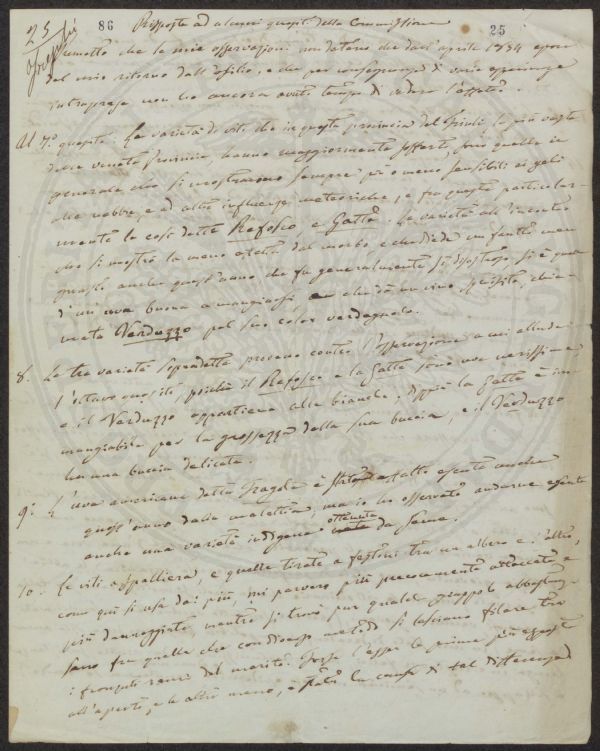 25 86 Risposte ad alcuni quesiti della Commissione 25
Premetto che le mie osservazioni non datano che dall'aprile 1854 epoca
del mio ritorno dall'esilio, e che per conseguenza di varie esperienze
intraprese non ho ancora avuto tempo di vedere l'effetto.
Al 7.° quesito. Le varietà di viti che in questa provincia del Friuli, la più vasta
delle venete Provincie, hanno maggiormente sofferto, sono quelle in
generale che si mostrarono sempre più o meno sensibili ai geli
alle nebbie, e ad altre influenze meteoriche, e fra queste particolar-
mente le così dette Refosco, e Gatta. La varietà all'incontro
che si mostrò la meno offesa dal morbo e che diede un frutto men
guasto anche quest'anno che fu generalmente sì disastroso, si è quella
d'un uva buona a mangiarsi e che dà un vino squisito, chia-
mata Verduzzo pel suo color verdognolo.
8. Le tre varietà sopradette provano contro l'osservazione a cui allude
l'ottavo quesito, poichè il Refosco e la Gatta sono uve nerissime,
e il Verduzzo appartiene alle bianche, eppure la Gatta è im-
mangiabile per la grossezza della sua buccia, e il Verduzzo
ha una buccia delicata.
9. L'uva americana detta Fragola è affatto esente anche
quest'anno dalla malattia, ma io ho osservato andarne esente
anche una varietà indigena ottenuta da seme.
10. Le viti a spalliera, e quelle tirate a festoni tra un albero e l'altro,
come qui si usa dai più, mi parvero più precocemente attaccate e
più danneggiate, mentre si trovò pur qualche grappolo abbastanza
sano fra quelle che con diverso metodo si lasciano filare tra
i fronzuti rami del marito. Forse l'esser le prime più esposte
all'aperto, e le altre meno, è stata la causa di tal differenza